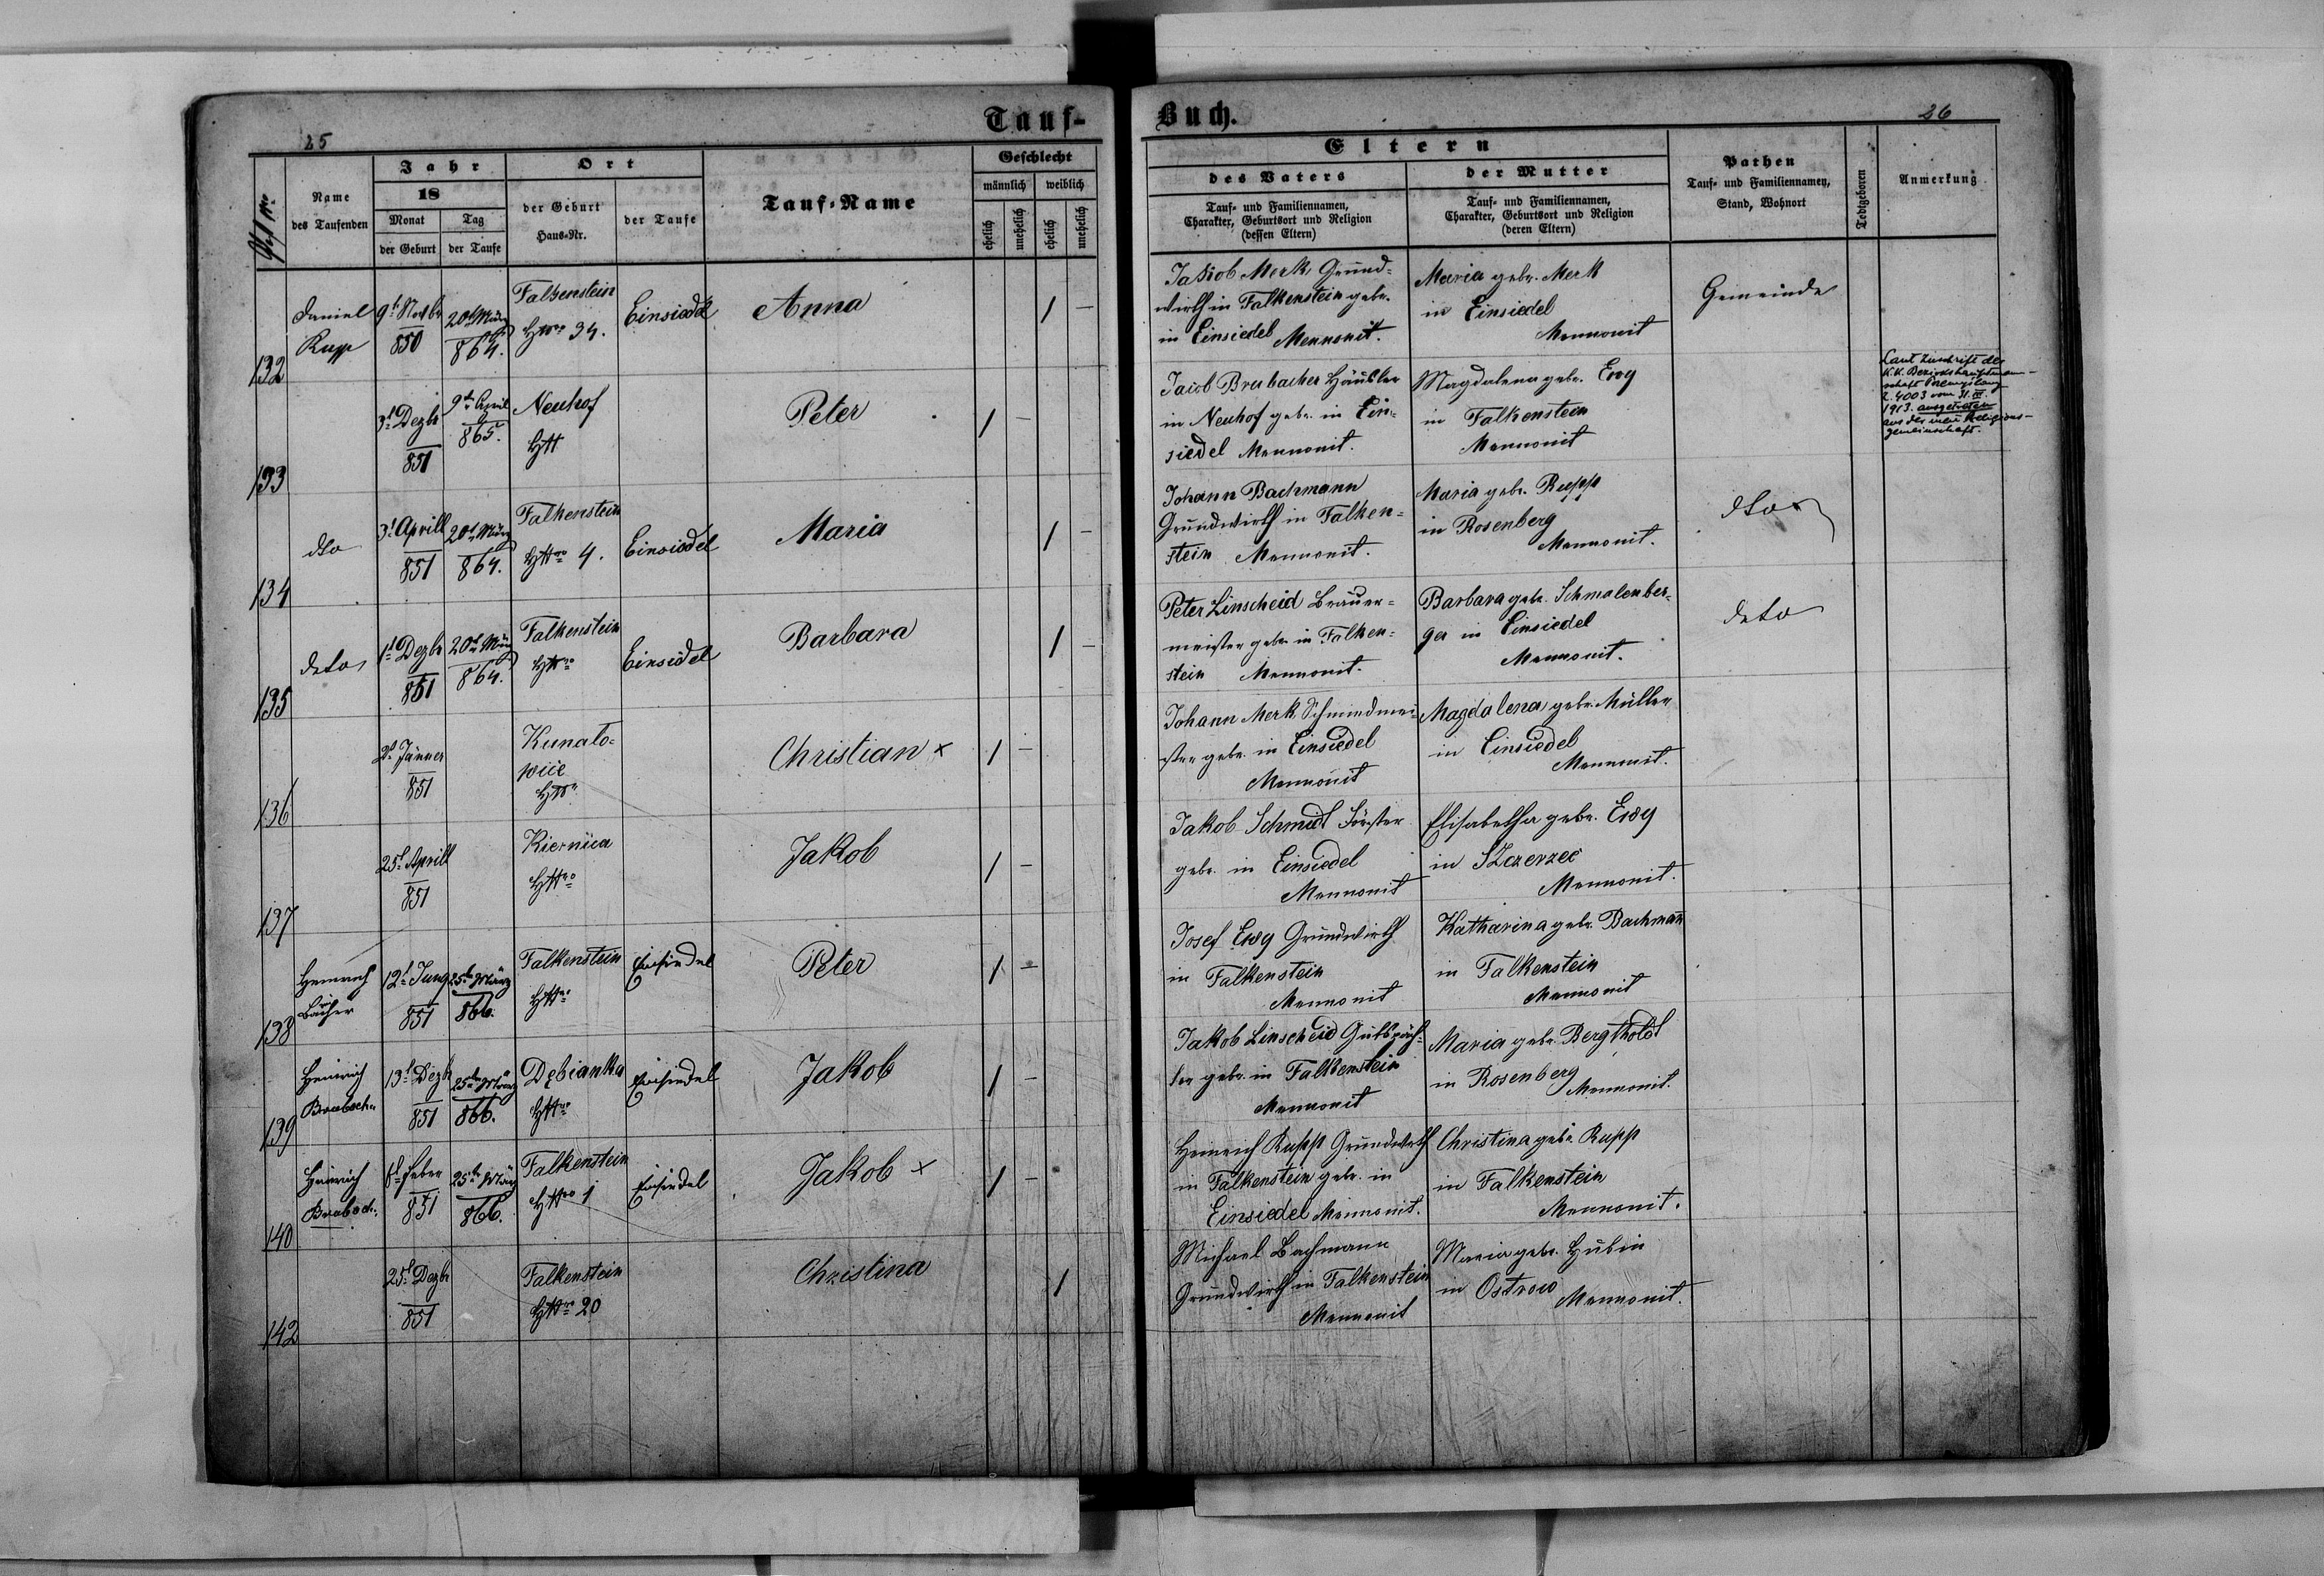 Tauf-
25
Jahr
Ort
Geschlecht
18
männlich weiblich
Name
des Taufenden
Monat
Tag
der Geburt
der Taufe
der Geburt
Haus-Nr.
der Taufe
Tauf-Name
ehelich
unehelich
ehelich
unehelich
132
Daniel
Rupp
9t Novbr
850
20t März
864.
Falkenstein
34.
Einsiedel
Anna
1 –
133
3t Dezbr
851
9t April
865.
Neuhof
Peter
1
134
dto
3t Aprill
851
20t März
864.
Falkenstein
4.
Einsiedel
Maria
1 –
135
deto
1t Dezbr
851
20t März
864.
Falkenstein
Einsiedel
Barbara
1 –
136
2t Jänner
851
Kunato-
wice
Christian x
1 –
137
25t Aprill
851
Kiernica
Jakob
1 –
138
Heinrich
12t Juny
851
25t März
866.
Falkenstein
Einsiedel
Peter
1 –
139
Heinrich
13t Dezbr
851
25t März
866.
Dębianka
Einsiedel
Jakob
1 –
140
Heinrich
8t Feber
851
25t März
866.
Falkenstein
1
Einsiedel
Jakob x
1 –
142
25t Dezbr
851
Falkenstein
20
Christina
1
Buch.
26
Eltern
des Vaters
der Mutter
Tauf- und Familiennamen,
Charakter, Geburtsort und Religion
(dessen Eltern)
Tauf- und Familiennamen,
Charakter, Geburtsort und Religion
(deren Eltern)
Pathen
Tauf- und Familiennamen,
Stand, Wohnort
Todtgeboren
Anmerkung
Jakob Merk, Grund-
wirth in Falkenstein geb.
in Einsiedel Mennonit.
Maria geb. Merk
in Einsiedel
Mennonit
Gemeinde
Jacob Brubacher Häusler
in Neuhof geb. in Ein-
siedel Mennonit.
Magdalena geb. Ewy
in Falkenstein
Mennonit
Laut Zuschrift der
K.K. Bezirkshauptman-
schaft Przemyslany
Z. 4003 vom 31.
1913. ausgetreten
aus der men. Religions-
gemeinschaft.
Johann Bachmann
Grundwirth in Falken-
stein Mennonit.
Maria geb. Rupp
in Rosenberg
Mennonit.
dto
Peter Linscheid Brauer-
meister geb. in Falken-
stein Mennonit.
Barbara geb. Schmalenber-
ger in Einsiedel
Mennonit.
deto
Johann Merk, Schmiedmei-
ster geb. in Einsiedel
Mennonit
Magdalena geb. Müller
in Einsiedel
Mennonit.
Jakob Schmidt Förster
geb. in Einsiedel
Mennonit
Elisabetha geb. Ewy
in SZczerzec
Mennonit.
Josef Ewy Grundwirth
in Falkenstein
Mennonit
Katharina geb. Bachmann
in Falkenstein
Mennonit
Jakob Linscheid Gutspäch-
ter geb. in Falkenstein
Mennonit
Maria geb. Bergtholdt
in Rosenberg
Mennonit.
Heinrich Rupp Grundwirth
in Falkenstein geb. in
Einsiedel Mennonit.
Christina geb. Rupp
in Falkenstein
Mennonit.
Michael Bachmann
Grundwirth in Falkenstein
Mennonit
Maria geb. Hubin
in Ostrow
Mennonit.